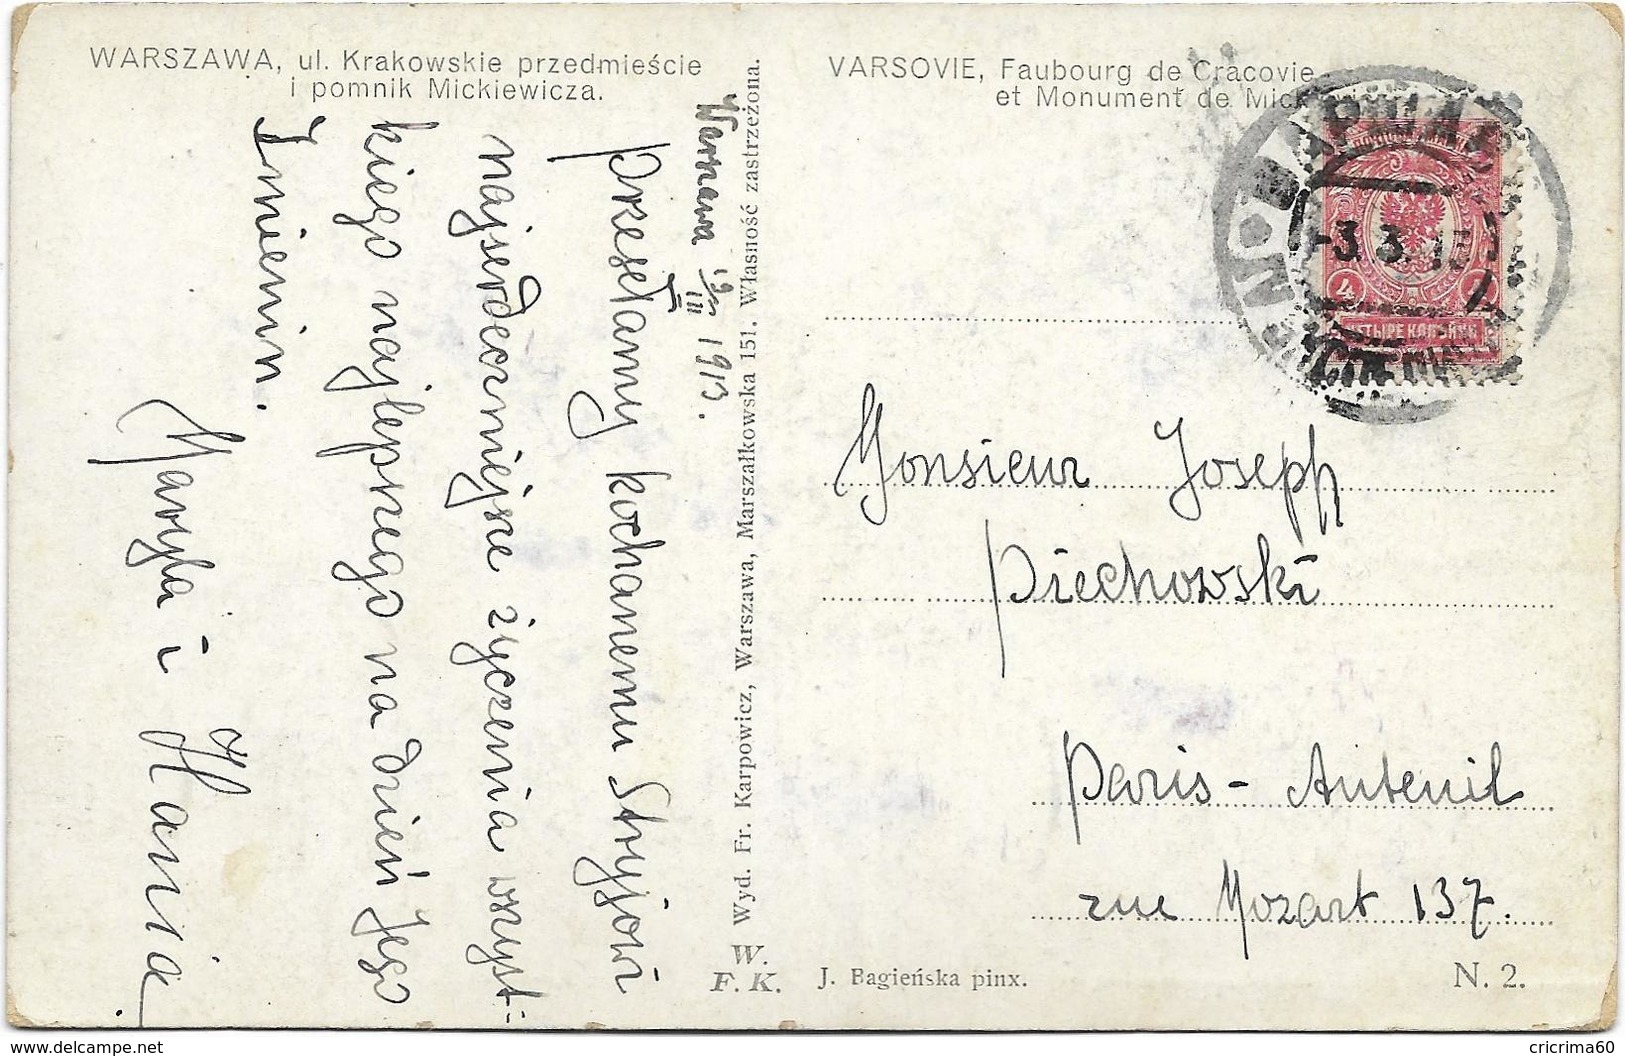 WARSZAWA, ul. Krakowskie przedmieście
i pomnik Mickiewicza.
VARSOVIE, Faubourg de Cracovie
et Monument de Mick
Warszawa
III 1913.
Przesełamy kochanemu Stryjowi
najserdeczniejsze życzenia wszyst-
kiego najlepszego na dzień Jego
Imienin.
Maryla i Hania
Wyd. Fr. Karpowicz, Warszawa, Marszałkowska 151. Własność zastrzeżona.
W.
F. K.
ВАРШАВ
3.3.
4
ЧЕТЫРЕ КОПѢЙКИ
Monsieur Joseph
Piechowski
Paris - Auteuil
rue Mozart 137.
J. Bagieńska pinx.
N. 2.
www.delcampe.net
cricrima60